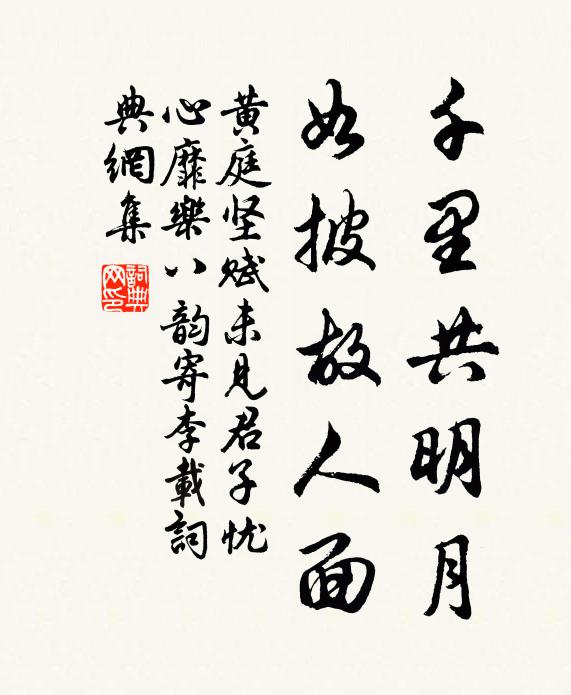 千里共明月
如披故人面
黄庭坚赋未见君子忧
心靡樂八韵寄李載詞
典網集
詞典网印